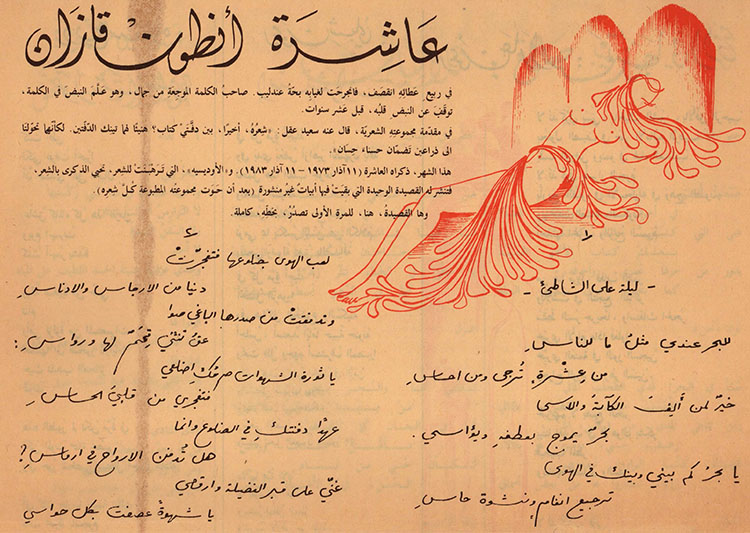 عَاشِرَة أنطون قازان
في ربيع عَطائِه انقصَف، فانجرحَت لغيابه بحّة عندليب. صاحبُ الكلمة الموجِعة من جمال، وهو عَلّمَ النبضَ في الكلمة،
توقّف عَن النبض قلبُه، قبل عشر سنوات.
في مقدّمة مجموعتِه الشعريّة، قال عنه سعيد عقل: «شِعرُهُ، أخيرًا، بين دفّتَي كتاب؟ هنيئًا لهما تينك الدفّتين. لكأنهما تحوّلتا
الى ذراعين تضمّان حسناء حِسَان».
هذا الشهر، ذكراه العاشرة (١١ آذار ١٩٧٣ - ١١ آذار ١٩٨٣). و«الأوديسيه»، التي ترهّبَتْ للشعر، تحيي الذكرى بالشعر،
فتنشر له القصيدة الوحيدة التي بقيَتْ فيها أبيات غيرُ منشورة (بعد أن حَوَت مجموعته المطبوعة كُلّ شعره).
وها القصيدةُ، هنا، للمرة الأولى تصدُرُ، بخطّه، كاملة.
١
- ليلة على الشاطئ -
للبحر عندي مثلُ ما للناسِ
من عِشرةٍ تُرجى ومن احساسِ
خيرٌ لمن ألِفَ الكآبةَ والأسى
بحرٌ يموج بعطفهِ ويؤاسي.
يا بحرُ كم بيني وبينك في الهوى
ترجيع انغامٍ ونشوة حاسِ
٤
لعب الهوى بضلوعها فتفجّرتْ
دنيا من الارجاس والادناسِ
وتدفقتْ من صدرها الباغي صدًا
لها ورواسِ:
يا ثورة الشهوات صرفكِ اضلعي
فتفجري من قلبيَ الحساسِ
عهدًا دفنتكِ في الضلوع وانما
هل تُدفن الارواح في ارماسِ؟
غنّي على قبر الفضيلة وارقصي
يا شهوةً عصفت بكل حواسي